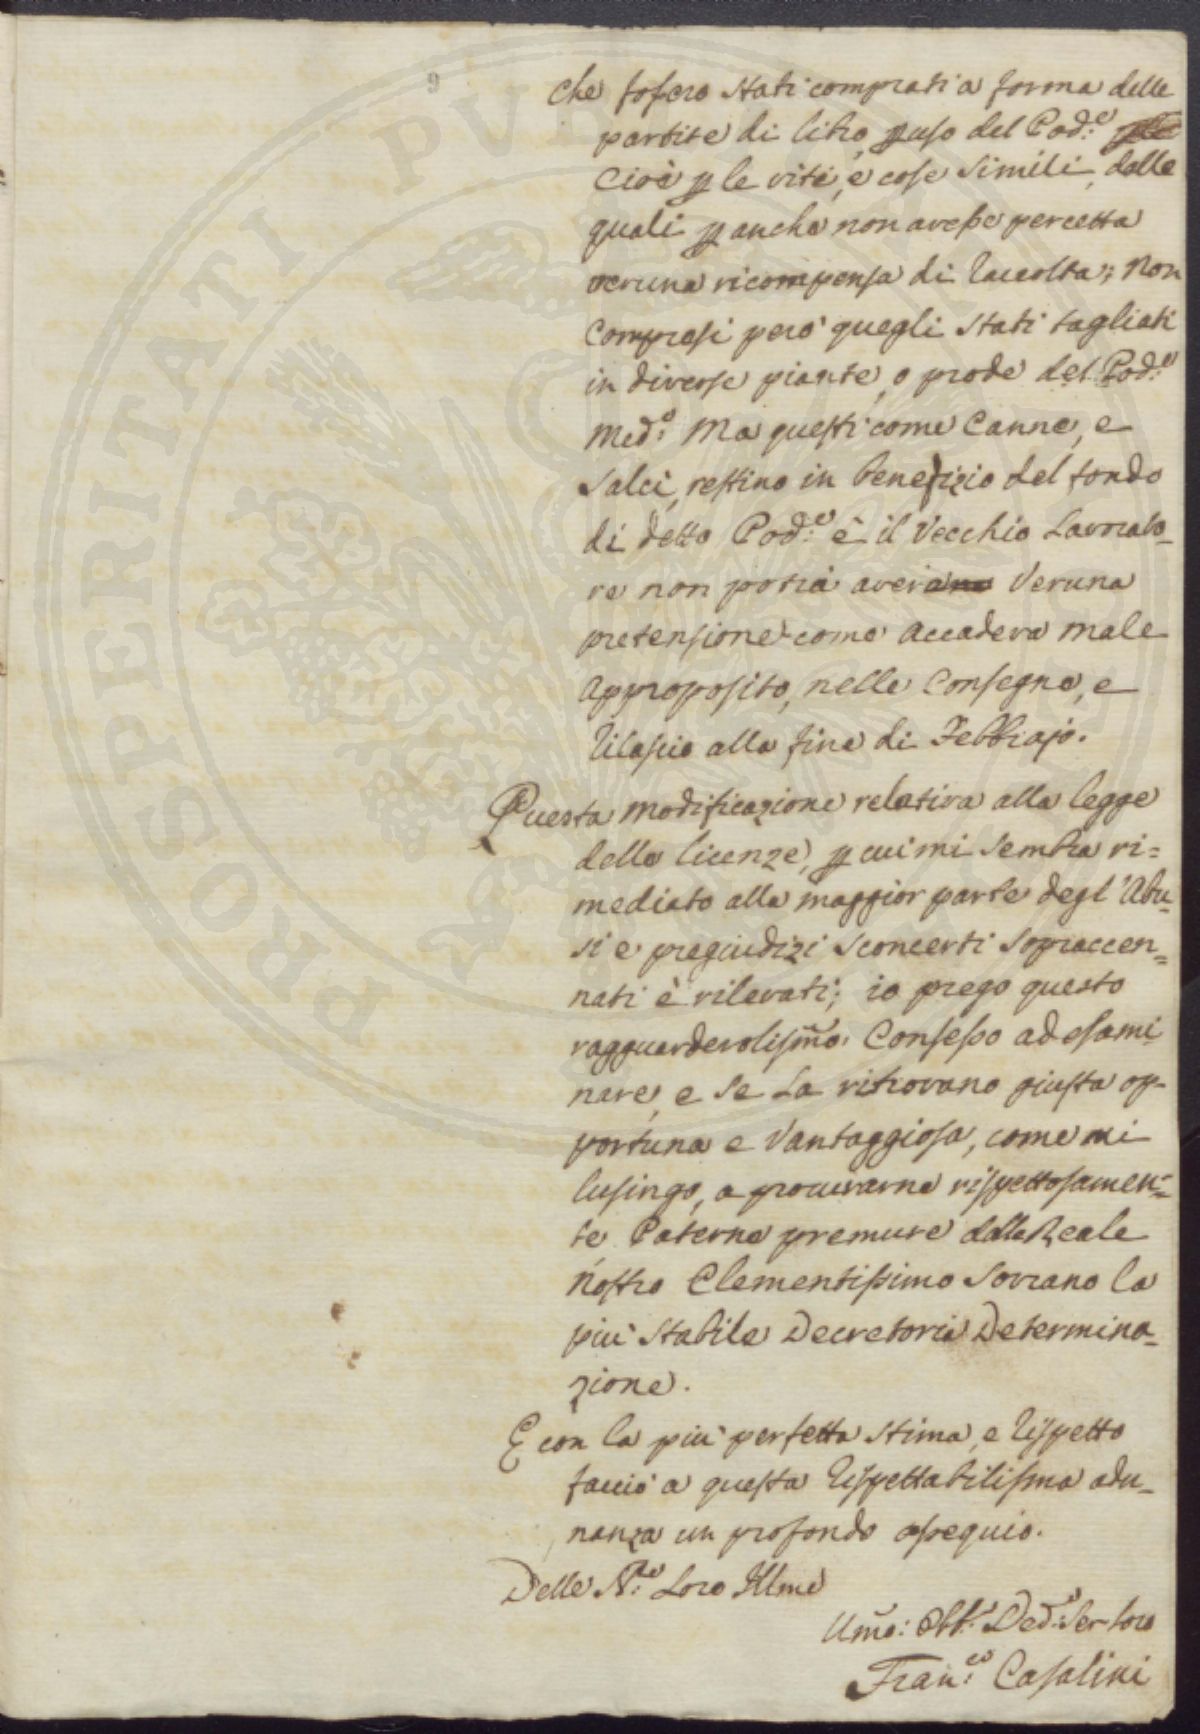 9
che fossero stati comprati a forma delle
partite di libro, p uso del Pod:e
Cioè p le vite, e cose simili, dalle
quali p anche non avesse percetta
veruna ricompensa di raccolta; Non
Compresi però quegli stati tagliati
in diverse piante, o prode del Pod:e
Med:o Ma questi come Canne, e
Salci, restino in benefizio del fondo
di detto Pod:e è il Vecchio Lavorato-
re non potrà aver Veruna
pretensione come accadeva male
approposito, nelle Consegne, e
rilascio alla fine di Febbrajo.
Questa modificazione relativa alla legge
delle licenze, p cui mi sembra ri=
mediato alla maggior parte degl'Abu-
si e pregiudizi sconcerti sopraccen=
nati è rilevati; io prego questo
ragguardevolissmo: Consesso ad esami
nare, e se La ritrovano giusta op-
portuna e Vantaggiosa, come mi
lusingo, a procurarne rispettosamen=
te Paterne premure dalle Reale
Nostro Clementissimo Sovrano la
più stabile Decretoria Determina-
zione.
E con la più perfetta stima, e rispetto
faccio a questa rispettabilissma adu-
nanza un profondo ossequio.
Delle N:e Loro Illme
Umo: Obb: Ded: Ser-tore
Fran:co Casalini
PROSPERITATI PUBLICAE